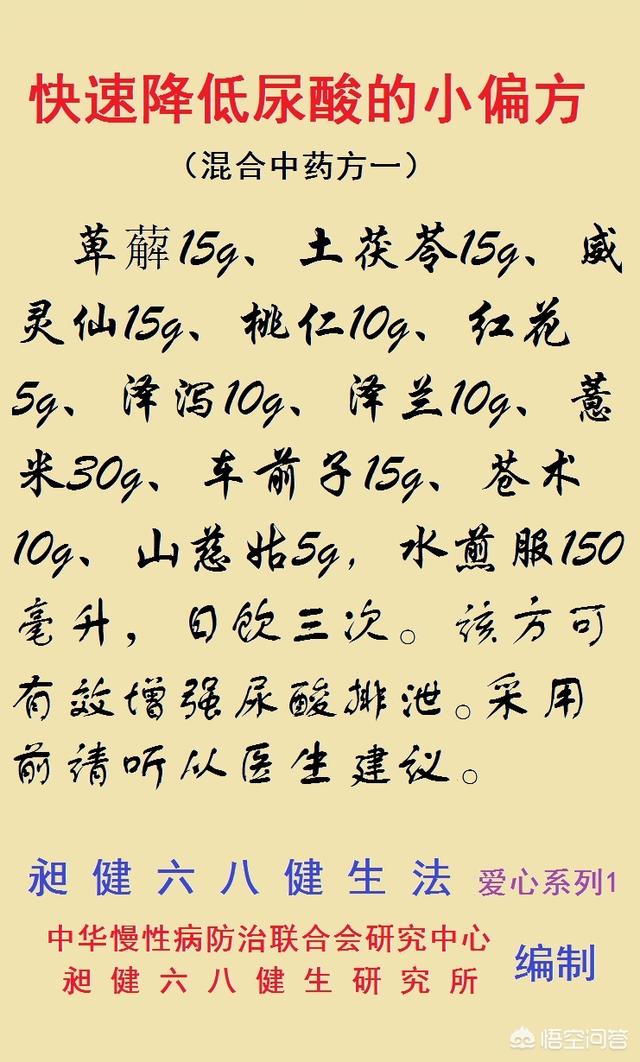 快速降低尿酸的小偏方
（混合中药方一）
萆薢15g、土茯苓15g、威
灵仙15g、桃仁10g、红花
5g、泽泻10g、泽兰10g、薏
米30g、车前子15g、苍术
10g、山慈姑5g，水煎服150
毫升，日饮三次。该方可
有效增强尿酸排泄。采用
前请听从医生建议。
昶健六八健生法 爱心系列1
中华慢性病防治联合会研究中心
昶健六八健生研究所
编制
悟空问答